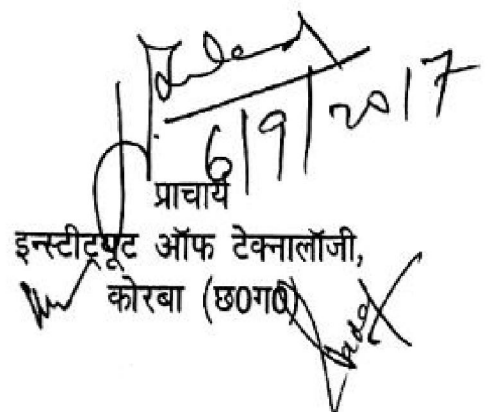 6/9/2017
प्राचार्य
इन्स्टीट्यूट ऑफ टेक्नालॉजी,
कोरबा (छ0ग0)